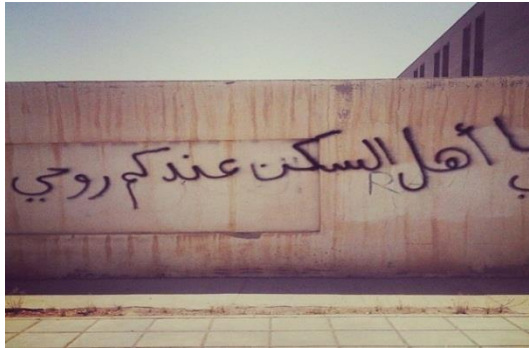 يا أهل السكن عندكم روحي
R